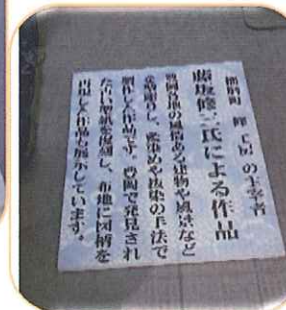 工房 の主宰者
藤坂修三氏による作品
豊岡各地の風情ある建物や風景など
を型彫りし、藍染めや抜染の手法で
製作した作品です。豊岡で発見され
た古い型紙を復刻し、布地に図柄を
再現した作品も展示しています。